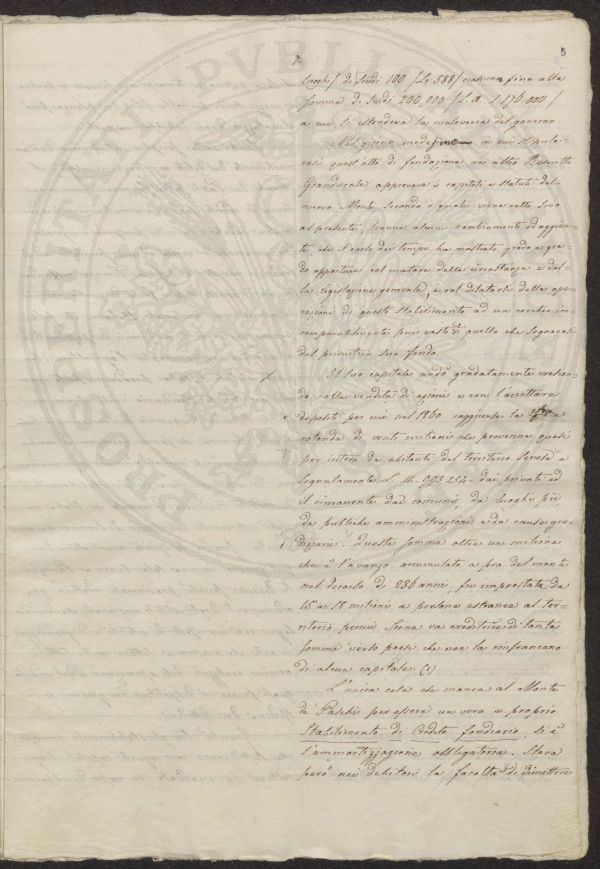 7.
5
luoghi / di Scudi 100 / Lit. 588 / ciascuno fino alla
somma di Scudi 200 000 / L. it. 1.176.000 /
a cui si estenderà la malleveria del governo
Nel giorno medesimo in cui stipula-
vasi quest'atto di fondazione un altro Rescritto
Granducale approvava i capitoli e statuti del
nuovo Monte, secondo i quali viene retto sino
al presente, tranne alcun cambiamento ed aggiun-
te, che il corso dei tempi, ha mostrato grado a gra-
do opportune col mutare delle circostanze e del-
la legislazione generale, e col dilatarsi delle ope-
razioni di questo Stabilimento ad un cerchio in-
comparabilmente piu vasto di quello che sognavasi
dal primitivo suo fondo.
Il suo capitale andò gradatamente crescen-
do colla vendita di azioni e con l'accettare
depositi per cui nel 1860 raggiunse la cifra
rotonda di venti milioni che provenne quasi
per intero da abitanti del territorio Senese e
segnatamente L. 11. 993 254 dai privati ed
il rimanente dai comuni, da luoghi pii
da pubbliche amministrazioni e da cause giu-
diziarie. Questa somma oltre un milione
che è l'avanzo accumulato a pro del monte
nel decorso di 236 anni, fu imprestata da
15 a 18 milioni a persone estranee al ter-
ritorio percui Siena va creditrice di tanta
somma verso paesi che non la rinfrancano
di alcun capitale (1)
L'unica cosa che manca al Monte
de' Paschi per essere un vero e proprio
Stabilimento di Credito fondiario, si è
l'ammortizzazione obbligatoria. Stava
però nei debitori la facoltà di dimettere
PVBLI
PROSPERITATI